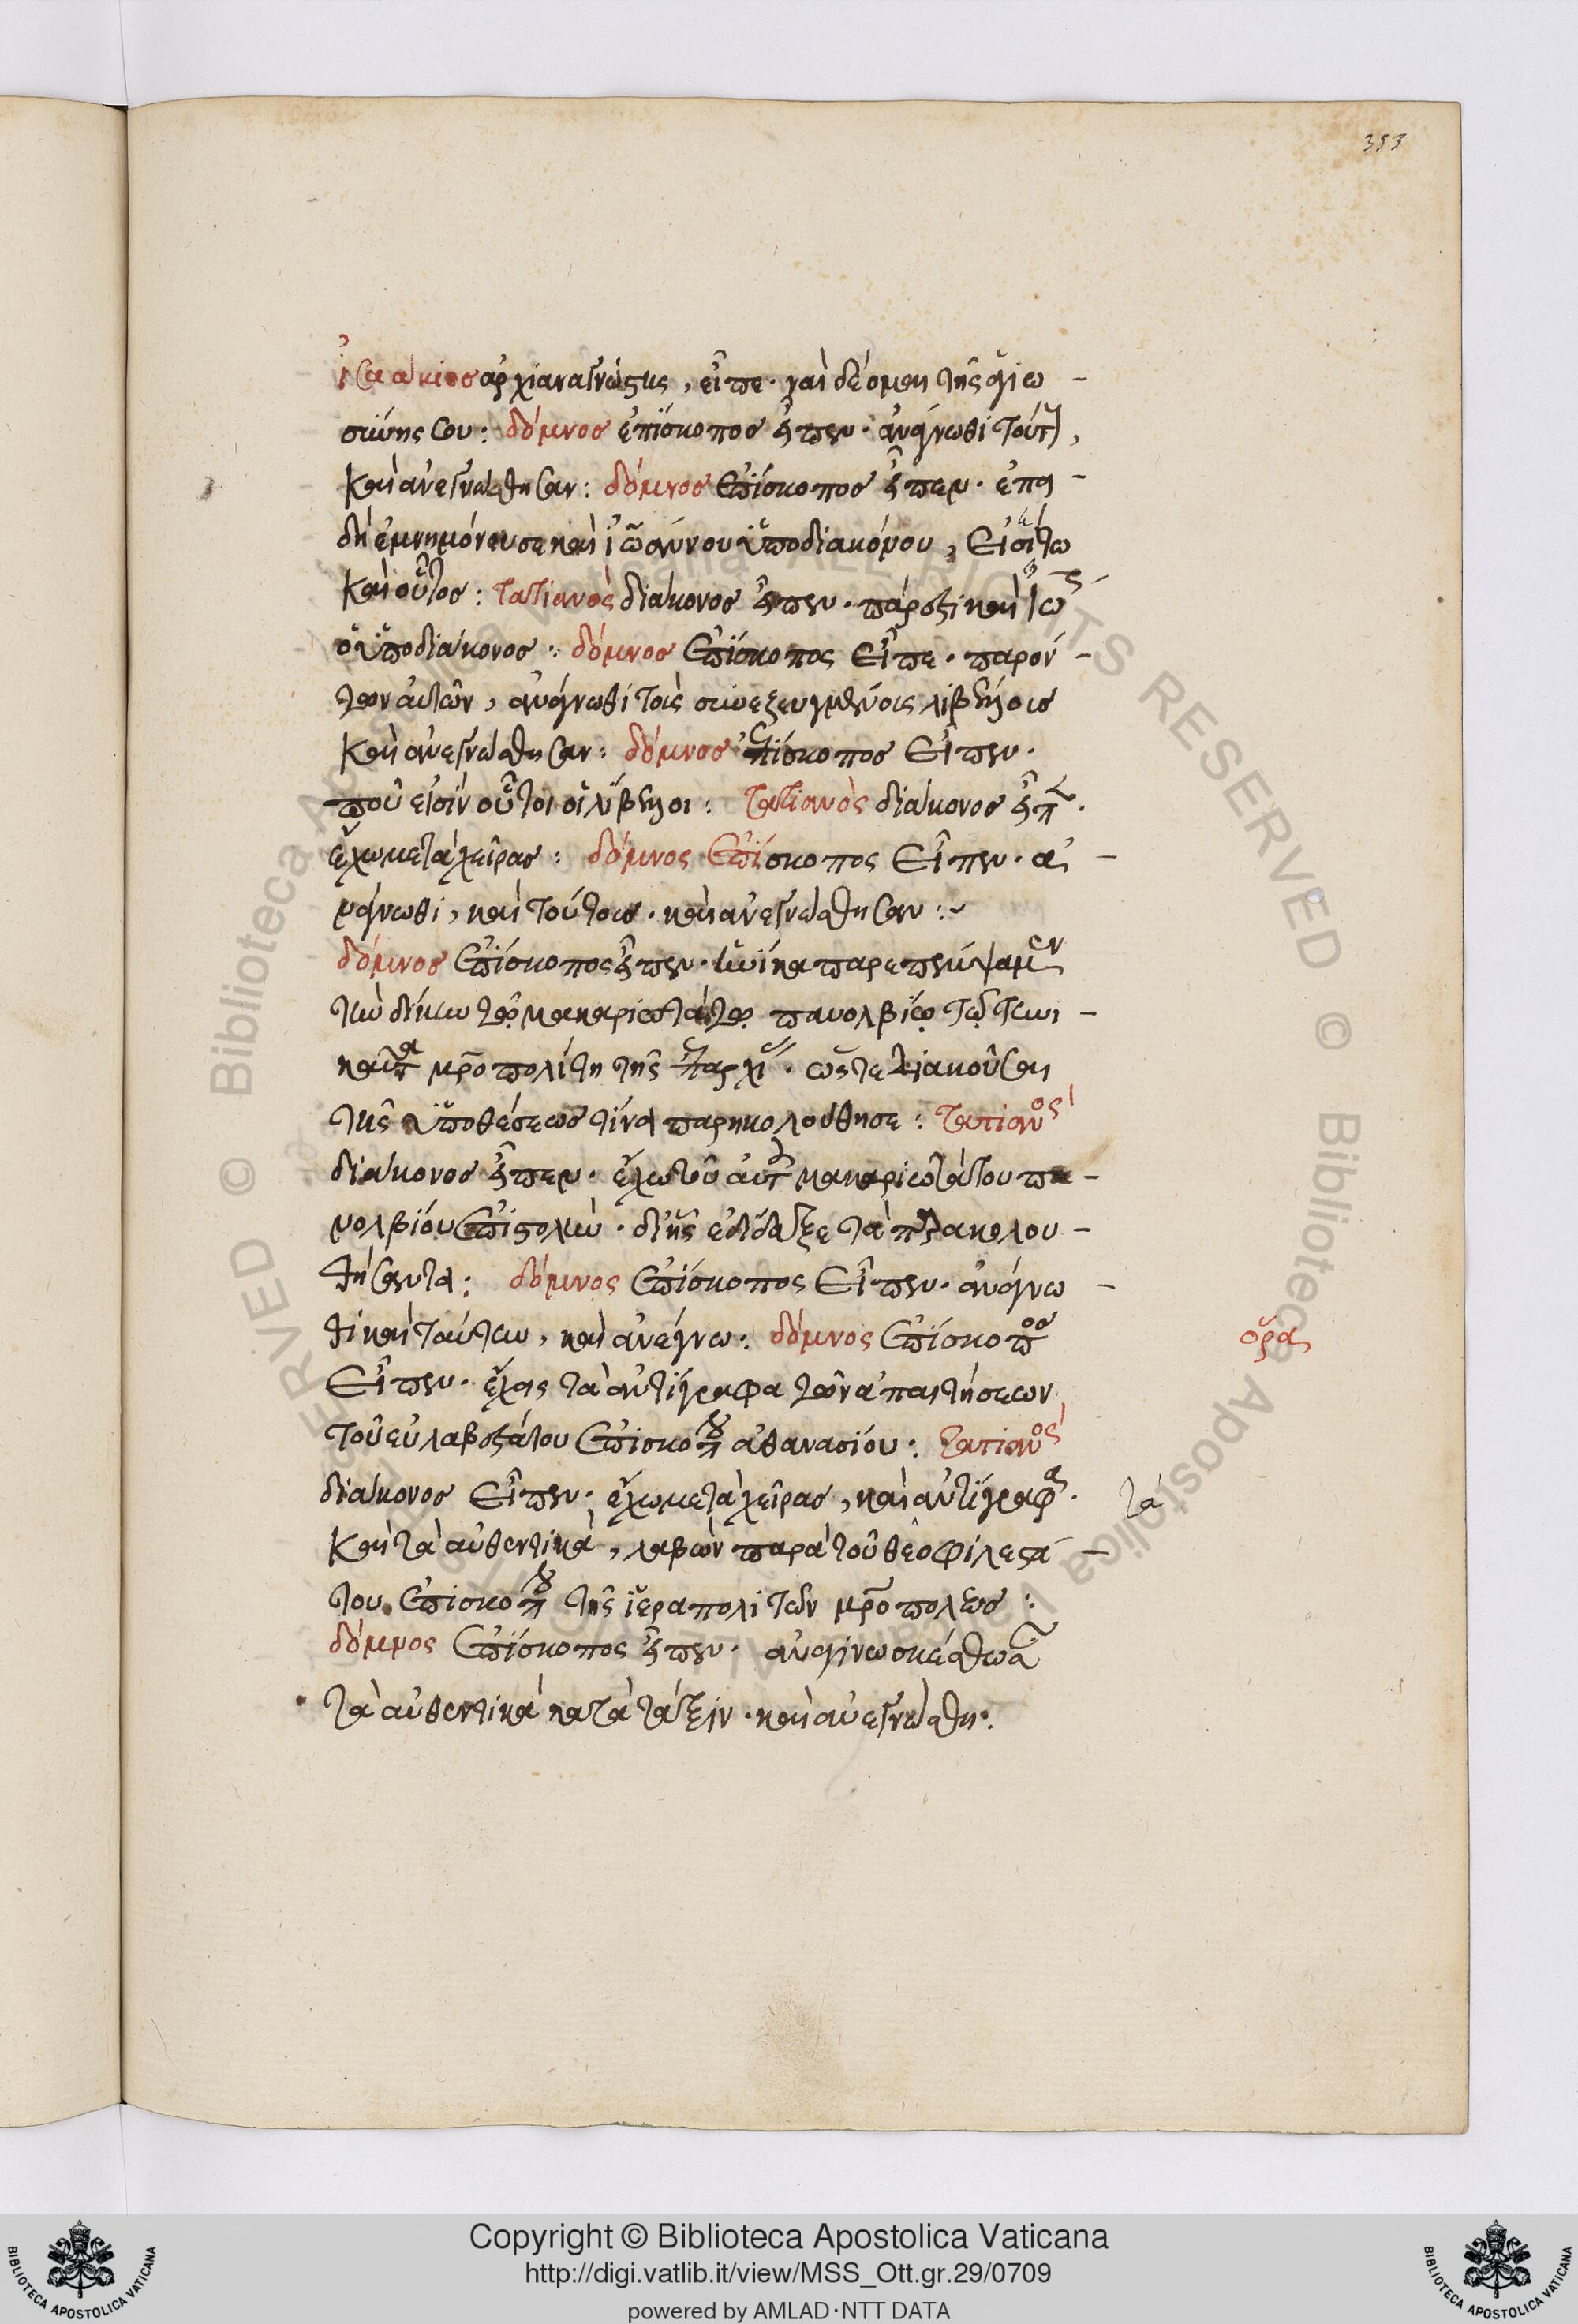 353
ἰσαάκιος ἀρχιαναγνώστης, εἶπε· ναὶ δέομαι τῆς ἁγιω-
σύνης σου: δόμνος ἐπίσκοπος εἶπεν· ἀνάγνωθι τούτ,
καὶ ἀνεγνώσθησαν: δόμνος ἐπίσκοπος εἶπεν· ἐπει-
δὴ ἐμνημόνευσε καὶ ἰωάννου ὑποδιακόνου, εἰσίτω
καὶ οὗτος: τατιανὸς διάκονος εἶπεν· πάρεστι καὶ ἰω
ὁ ὑποδιάκονος: δόμνος ἐπίσκοπος εἶπε· παρόν-
των αὐτῶν, ἀνάγνωθι τοὺς συνεζευγμένους λιβέλλους
καὶ ἀνεγνώσθησαν: δόμνος ἐπίσκοπος εἶπεν·
ποῦ εἰσὶν οὗτοι οἱ λίβελλοι: τατιανὸς διάκονος εἶπ·
ἔχω μετὰ χεῖρας: δόμνος ἐπίσκοπος εἶπεν· ἀ-
νάγνωθι, καὶ τούτους· καὶ ἀνεγνώσθησαν:~
δόμνος ἐπίσκοπος εἶπεν· ἡνίκα παρεπέμψαμεν
τὴν δίκην τῷ μακαριωτάτῳ πανολβίῳ τῷ τηνι-
καῦτα μροπολίτῃ τῆς ἐπαρχι· ὥστε διακοῦσαι
τῆς ὑποθέσεως τίνα παρηκολούθησε: τατιανὸς
διάκονος εἶπεν· ἔχω τοῦ αὐτ μακαριωτάτου πα-
νολβίου ἐπιστολὴν· δι' ἧς ἐδίδαξε τὰ παρακολου-
θήσαντα: δόμνος ἐπίσκοπος εἶπεν· ἀνάγνω-
θι καὶ ταύτην, καὶ ἀνέγνω: δόμνος ἐπίσκοπος
εἶπεν· ἔχεις τὰ ἀντίγραφα τῶν ἀπαιτήσεων
τοῦ εὐλαβεστάτου ἐπισκόπου ἀθανασίου: τατιανὸς
διάκονος εἶπεν· ἔχω μετὰ χεῖρας, καὶ ἀντίγραφα·
καὶ τὰ αὐθεντικὰ, λαβὼν παρὰ τοῦ θεοφιλεστά-
του ἐπισκόπου τῆς ἱεραπολιτῶν μροπόλεως:
δόμνος ἐπίσκοπος εἶπεν· ἀναγινωσκέσθωσαν
τὰ αὐθεντικὰ κατὰ τάξιν· καὶ ἀνεγνώσθη:
ὅρα
τὰ
BIBLIOTECA APOSTOLICA VATICANA
Copyright © Biblioteca Apostolica Vaticana
http://digi.vatlib.it/view/MSS_Ott.gr.29/0709
powered by AMLAD·NTT DATA
BIBLIOTECA APOSTOLICA VATICANA